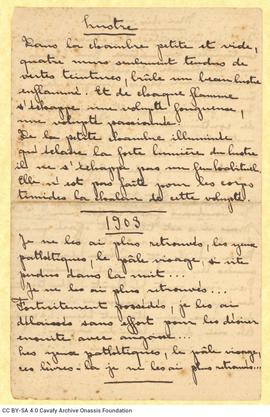 Lustre
Dans la chambre petite et vide,
quatre murs seulement tendus de
vertes teintures, brûle un beau lustre
enflammé. Et de chaque flamme
s'échappe une volupté fougueuse,
une volupté passionnée.
De la petite chambre illuminée
qui éclaire la forte lumière du lustre
il ne s'échappe pas un feu habituel
Elle n'est pas faite pour les corps
timides la chaleur de cette volupté.
1903
Je ne les ai plus retrouvés, les yeux
pathétiques, le pâle visage, si vite
perdus dans la nuit...
Je ne les ai plus retrouvés...
Fortuitement possédés, je les ai
délaissés sans effort pour les désirer
ensuite avec angoisse...
Les yeux pathétiques, le pâle visage,
ces lèvres-là je ne les ai plus retrouvés...
CC BY-SA 4.0 Cavafy Archive Onassis Foundation